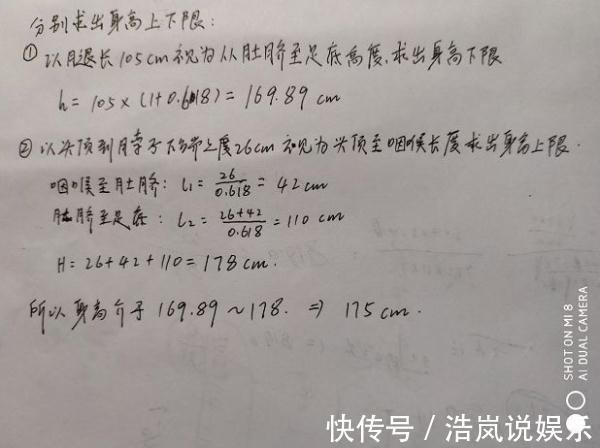 分别求出身高上下限:
① 以腿长105cm视为从肚脐至足底高度,求出身高下限
h = 105 × (1+0.618) = 169.89 cm
② 以头顶到脖子下端之度26cm视为头顶至咽喉长度求出身高上限.
咽喉至肚脐: l₁ = 26/0.618 = 42 cm
肚脐至足底: l₂ = (26+42)/0.618 = 110 cm
H = 26+42+110 = 178 cm.
所以身高介于 169.89 ~ 178. ⇒ 175 cm.
SHOT ON MI 8
AI DUAL CAMERA
快传号 / 浩岚说娱乐